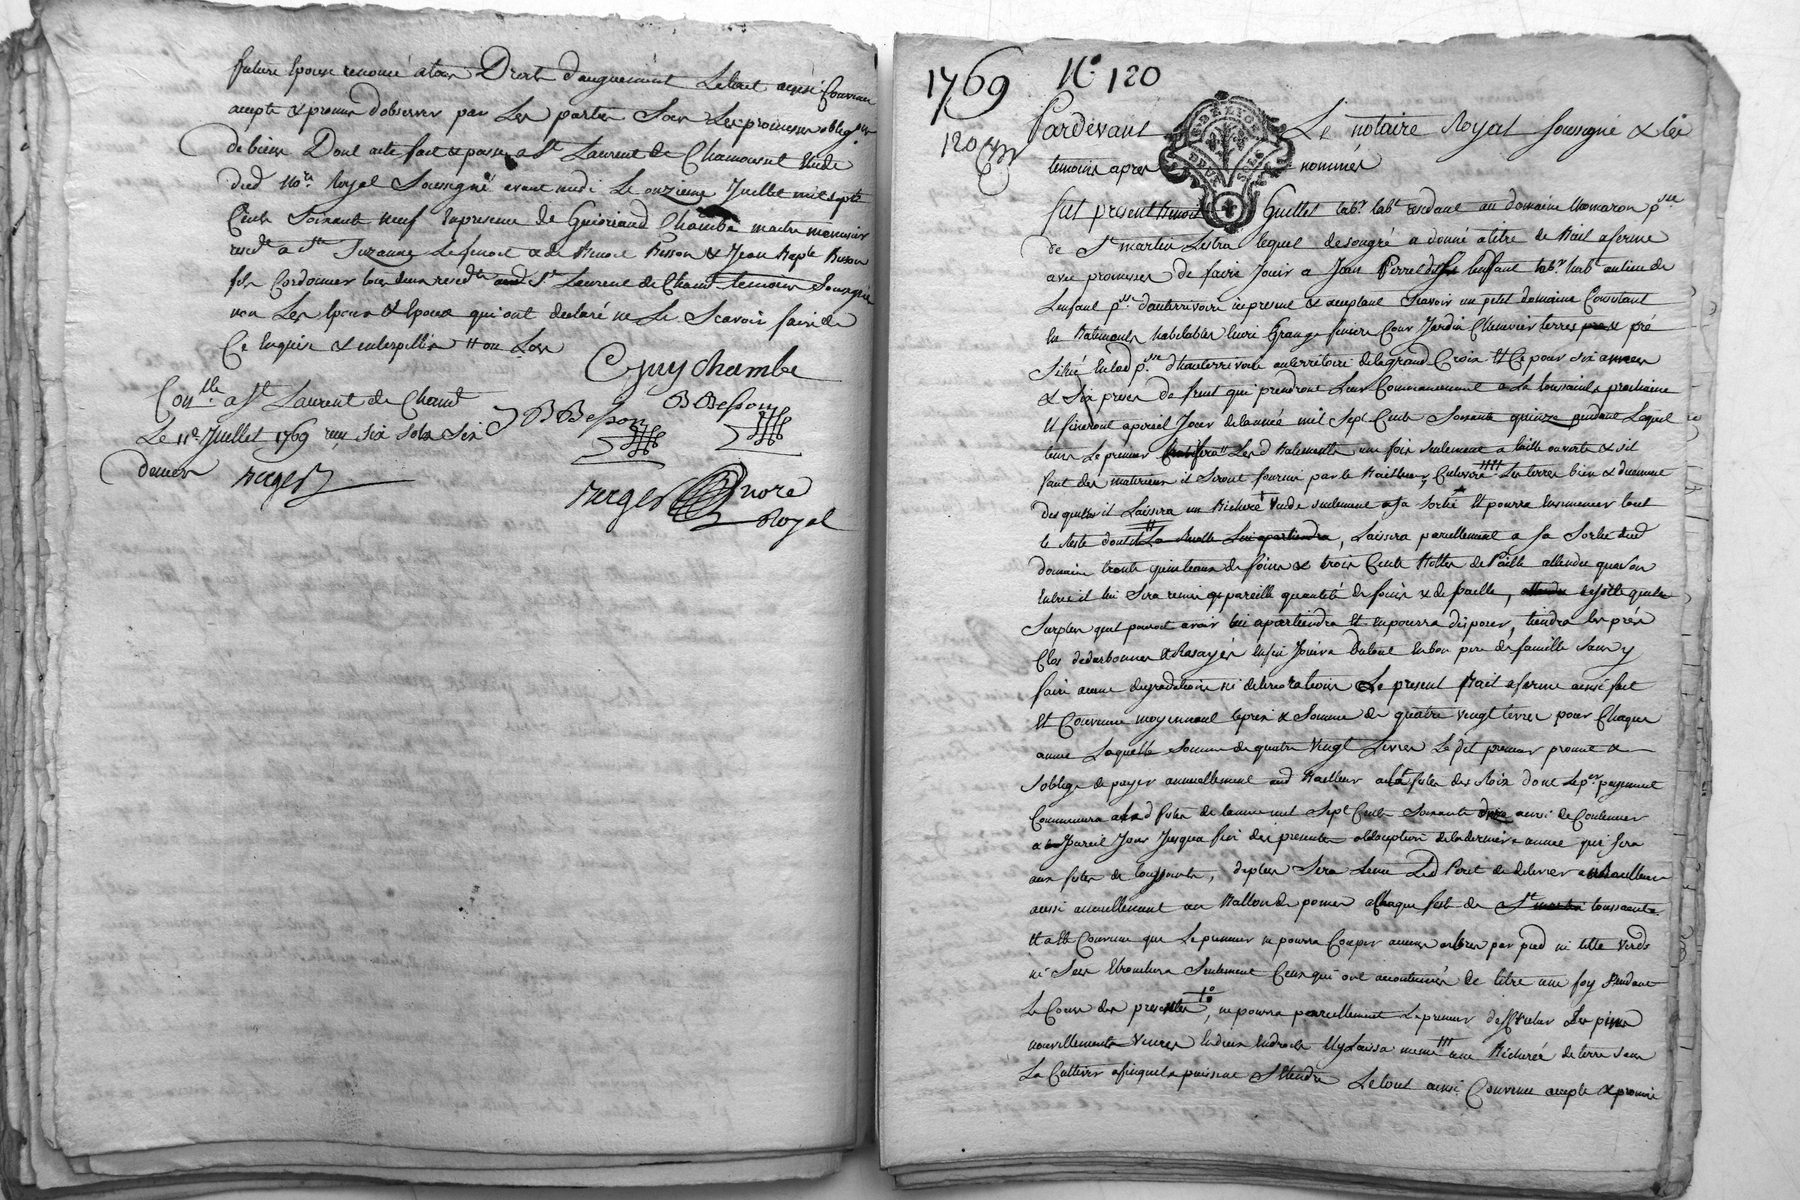 future Epouse renoncé a tous Droits d'augment Le tout ainsi Convenu
accepté & promis d'observer par Les parties Sous Les promesses oblig.ons
de biens Dont acte fait & passé a St Laurent de Chamousset Etude
dud No.re Royal Soussigné avant midi Le onzieme Juillet mil sept
Cents Soixante neuf En presence de Chamba maitre menuisier
resid.t a Ste Suzanne & de Benoit Besson & Jean Bapte Besson
fils Cordonier tous deux resid.ts St Laurent de Cham.t temoins Soussignés
non Les Epoux & Epouse qui ont declaré ne Le Scavoir faire de
Ce Enquis & interpellés
Guy chambe
Con.lle a St Laurent de Cham.t
BBesson BBesson
Le 11e Juillet 1769 reçu six sols six
deniers
Notre
Royal
1769 No. 120
120
Pardevant Le notaire Royal soussigné & les
G. DE LYON
DEUX SOLS
temoins apres nommés
fut present Benoit Guillet lab.r hab.t residant au domaine p.sse
de St martin Lestra lequel de son gré a donné a titre de Bail a ferme
avec promesses de faire Jouir a Jean Perret dit Lenfant lab.r hab.t au lieu de
Lenfant p.sse d'auterrivoire icy present & acceptant Scavoir un petit domaine Consistant
En Batiments habitables Ecurie Grange feniere Cour Jardin Chenevier terres pré
Situé En lad p.sse d'hauterrivoire au territoire de la grand Croix Et Ce pour six années
& Six prises de fruit qui prendront Leur Commancement a La toussaints prochaine
Et finiront a pareil Jour de l'année mil Sept Cents Soixante quinze pendant Lequel
tems Le preneur Les d Batiments une fois seulement a taille ouverte & s'il
faut des materiaux il Seront fournis par le Bailleur, Cultivera Les terres bien & duement
des quelles il Laissera un Bicheré vuide seulement a sa sortie Et pourra Ensemencer tout
le reste dont La Recolte Lui apartiendra, Laissera pareillement a sa Sortie dud
domaine trente quinteaux de foins & trois Cents Bottes de Paille attendu qua son
Entrée il lui Sera remis pareille quantité de foin & de paille, de sorte que le
Surplus quil pouroit avoir lui apartiendra Et en pourra disposer, tiendra les prés
Clos & Rasayés Enfin Jouira du tout En bon pere de famille sans y
faire aucune degradations ni deterioration Le present Bail a ferme ainsi fait
Et Convenu moyennant le prix & Somme de quatre vingt livres pour Chaque
année Laquelle Somme de quatre Vingt Livres Le dit preneur promet &
s'oblige de payer annuellement aud Bailleur a la fetes des Rois dont Le p.er payement
Commencera aud fetes de l'année mil Sept Cents Soixante onze ainsi de Continuer
a Pareil Jour Jusqua fin des presentes a l'exception de la derniere année qui sera
aux fetes de toussaints, de plus Sera tenu Led Perret de delivrer au Bailleur
aussi annuellement un Ballon de pomes a Chaque fete de St martin toussaints
Il a été Convenu que Le preneur ne pourra Couper aucuns arbres par pied ni tette Verds
ni Secs Etrochera Seulement Ceux qui ont accoutumés de l'etre une foy Pendant
Le Cours des presentes, ne pourra pareillement Le preneur Les pins
nouvellements Venus Endeux Endroits Et y Laissa meme une Bicherée de terre sans
La Cultiver afin quel puissent S'Etendre Le tout ainsi Convenu accepté & promis